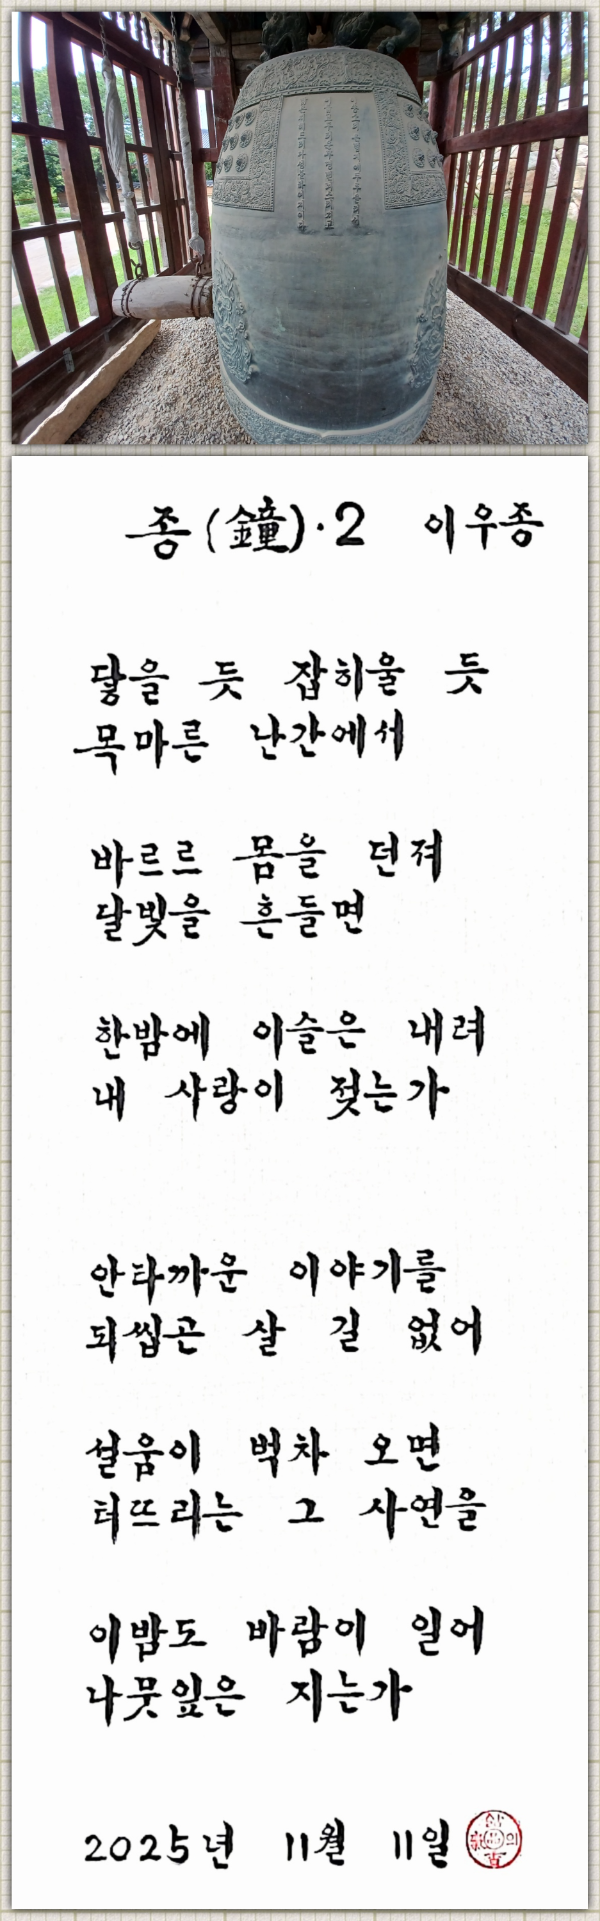 종(鐘)·2 이우종
닿을 듯 잡히울 듯
목마른 난간에서
바르르 몸을 던져
달빛을 흔들면
한밤에 이슬은 내려
내 사랑이 젖는가
안타까운 이야기를
되씹곤 살 길 없어
설움이 벅차 오면
터뜨리는 그 사연을
이밤도 바람이 일어
나뭇잎은 지는가
2025년 11월 11일